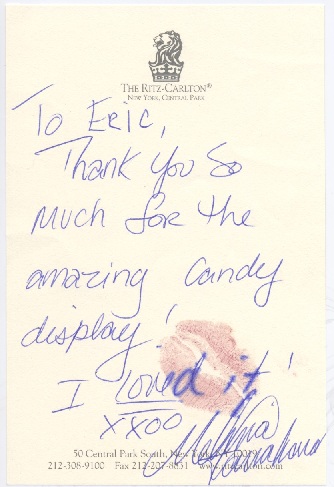 THE RITZ-CARLTON®
NEW YORK, CENTRAL PARK
To Eric,
Thank You So
Much for the
amazing Candy
display!
I loved it!
XXOO
50 Central Park South, New York, NY
212-308-9100 Fax 212-207-8831 www.ritzcarlton.com